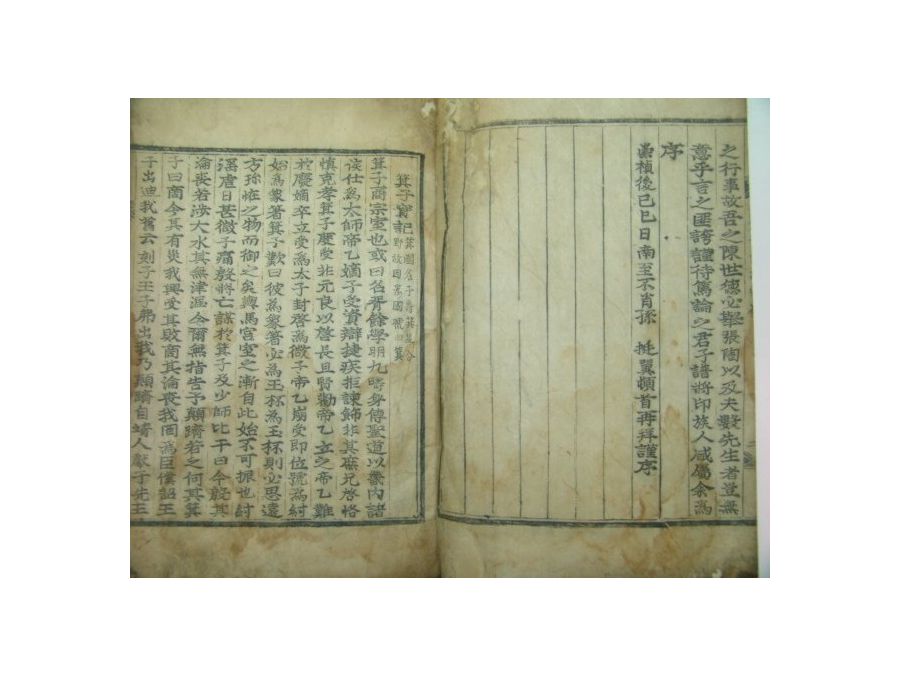 之行事故吾之陳世德必擧張陶以及夫數先生者豈無
意乎言之匪誇謹待篤論之君子譜將印族人咸屬余爲
序
崇禎後己巳日南至不肖孫 挺翼頓首再拜謹序
箕子實記
箕子商宗室也或曰名胥餘學明九疇身傳聖道以畿內諸
侯仕爲太師帝乙嫡子受資辯捷疾拒諫飾非其庶兄啓恪
愼克孝箕子度受非元良以啓長且賢勸帝乙立之帝乙難
於廢嫡卒立受爲太子封啓爲微子帝乙崩受卽位號爲紂
始爲象箸箕子歎曰彼爲象箸必爲玉杯爲玉杯則必思遠
方珍怪之物而御之矣輿馬宮室之漸自此始不可振也紂
淫虐日甚微子痛殷將亡謀於箕子及少師比干曰今殷其
淪喪若涉大水其無津涯今爾無指告予顚隮若之何其箕
子曰商今其有災我興受其敗商其淪喪我罔爲臣僕詔王
子出迪我舊云刻子王子弗出我乃顚隮自靖人獻于先王